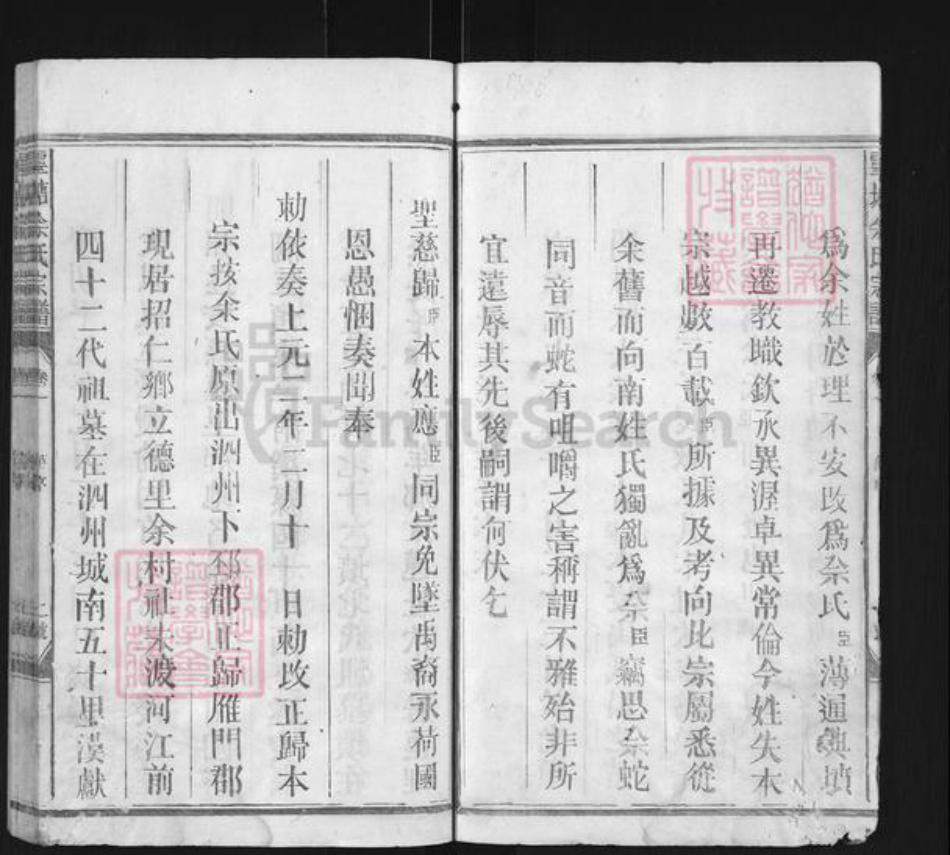 爲余姓於理不安改爲佘氏臣薄通典墳
再遷教職欽承異渥卓異常倫今姓失本
宗越數百載臣所據及考向北宗屬悉從
余舊而向南姓氏獨亂爲佘臣竊思佘蛇
同音而蛇有咀嚼之害稱謂不雅殆非所
宜遠辱其先後嗣謂何伏乞
聖慈歸臣本姓應臣同宗免墜禹裔永荷國
恩愚悃奏聞奉
勅依奏上元二年二月十 日勅改正歸本
宗按余氏原出泗州下邳郡正歸雁門郡
現居招仁鄉立德里余村社朱渡河江前
四十二代祖墓在泗州城南五十里漠獻
余氏宗譜
FamilySearch